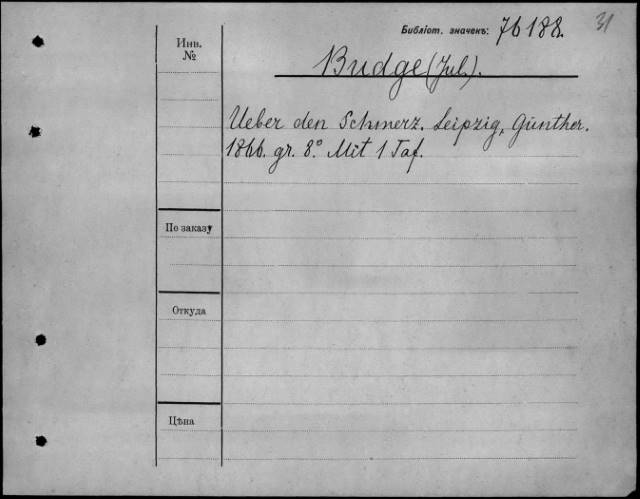 Библіот. значекъ: 76188.
31
Инв.
№
Budge (Jul.).
Ueber den Schmerz. Leipzig, Günther.
1866. gr. 8.° Mit 1 Taf.
По заказу
Откуда
Цѣна